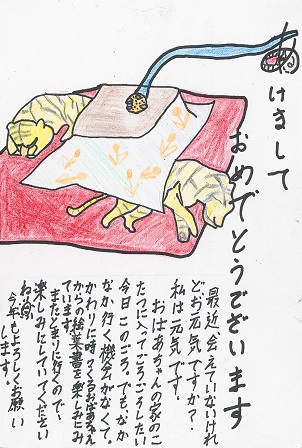 あけまして
おめでとうございます
最近会えていないけれ
どお元気ですか？
私は元気です！
おばあちゃんの家のこ
たつに入ってごろごろしたい
今日このごろ。でも、なか
なか行く機会がなくて、
かわりに時々くるおばあちゃん
からの絵葉書を楽しみにし
ています。
またとまりに行くので、
楽しみにしていてください
ね。
今年もよろしくお願い
します！